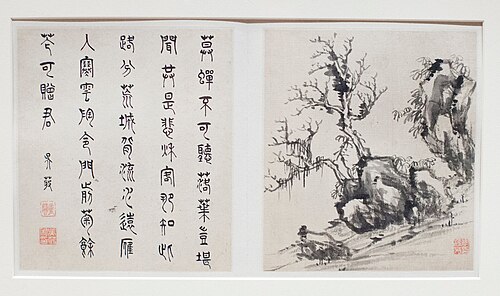 莫蟬不可聽落葉豈堪
聞共是悲秋客那知此
路分荒城背流水遠雁
入寒雲陶令門前菊餘
花可贈君